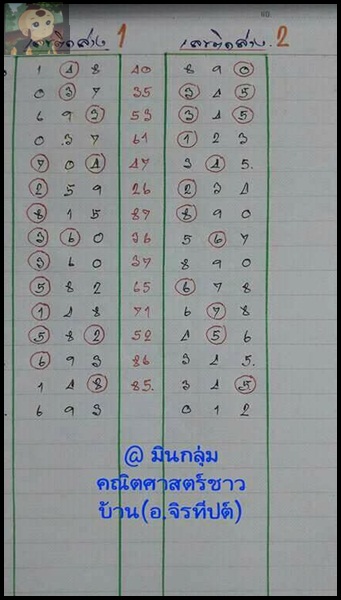 เลขติดล่าง 1 เลขติดล่าง. 2
1 4 8 40 8 9 0
0 3 7 35 3 4 5
6 9 3 53 3 4 5
0 3 7 61 1 2 3
7 0 4 47 3 4 5.
2 5 9 26 2 3 4
8 1 5 87 8 9 0
3 6 0 36 5 6 7
3 6 0 37 8 9 0
5 8 2 65 6 7 8
1 4 8 71 6 7 8
5 8 2 52 4 5 6
6 9 3 86 3 4 5.
1 4 8 85. 3 4 5
6 9 3 0 1 2
@ มินกลุ่ม
คณิตศาสตร์ชาว
บ้าน(อ.จิรทีปต์)